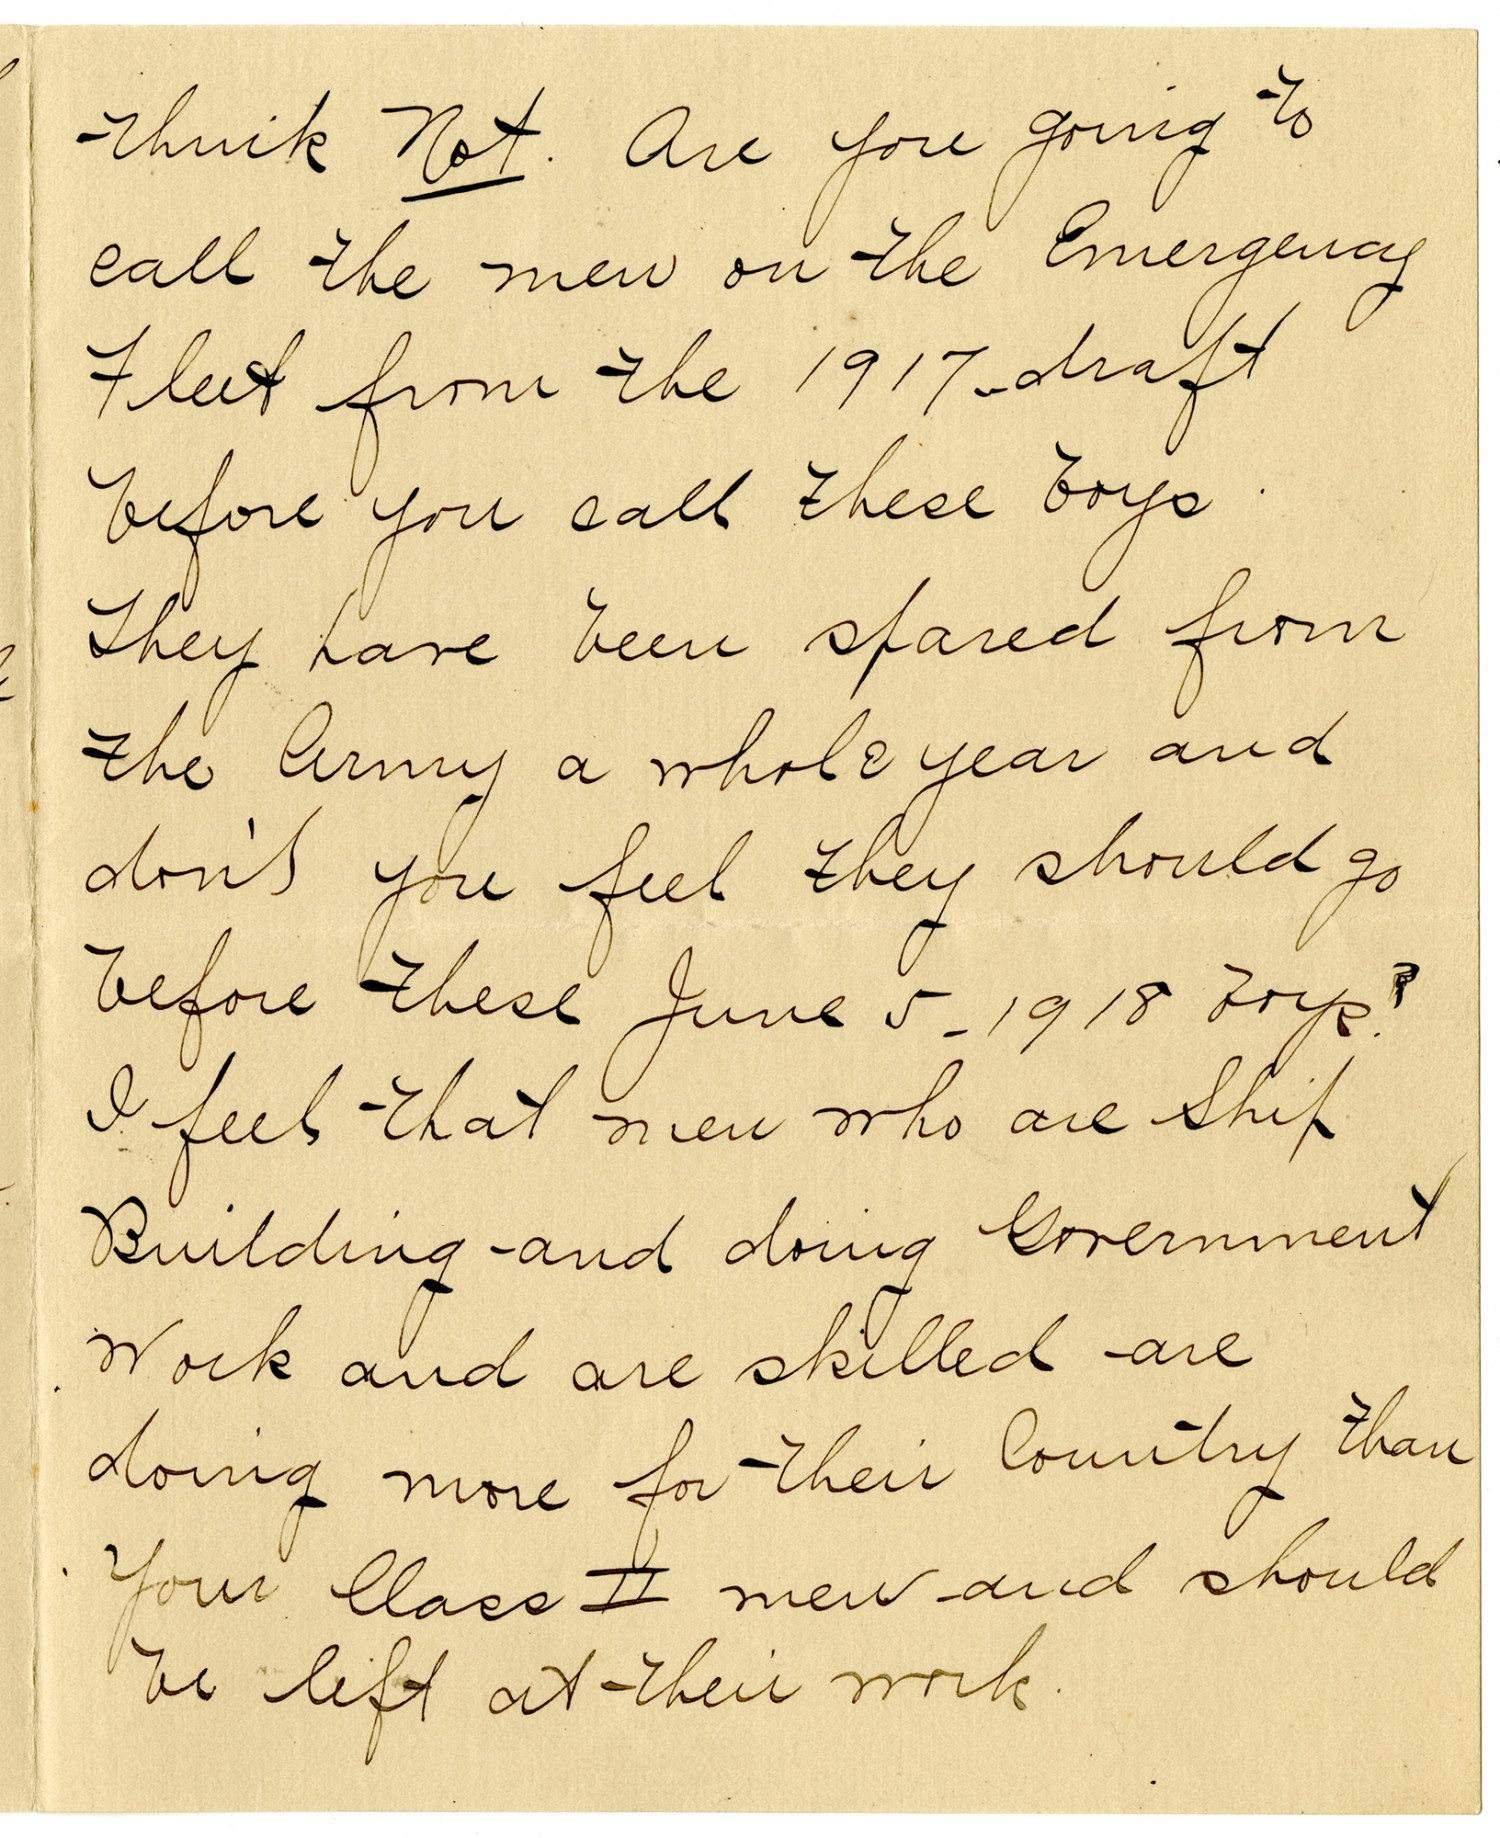 think Not. Are you going to
call the men on the Emergency
Fleet from the 1917 draft
before you call these boys.
They have been spared from
the Army a whole year and
don't you feel they should go
before these June 5-1918 boys?
I feel that men who are Ship
Building and doing Government
Work and are skilled are
doing more for their Country than
Your Class II men and should
be left at their work.